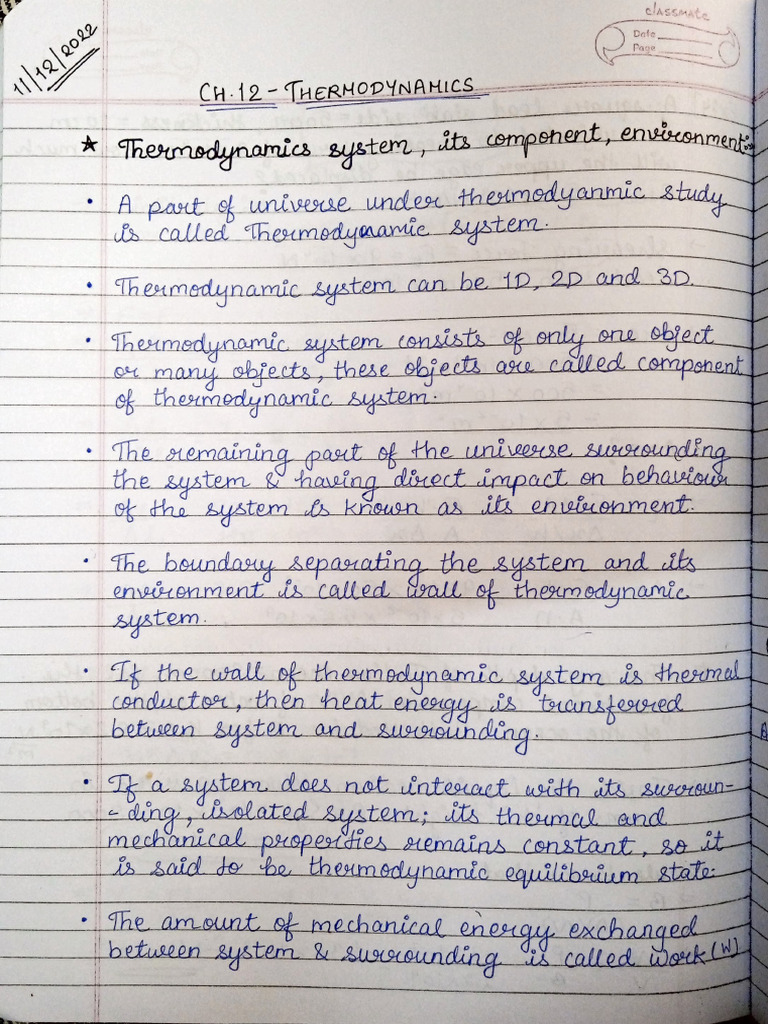 classmate
Date
Page
11/12/2022
CH.12 - THERMODYNAMICS
★ Thermodynamics system, its component, environment:
• A part of universe under thermodyanmic study
is called Thermodynamic system.
• Thermodynamic system can be 1D, 2D and 3D.
• Thermodynamic system consists of only one object
or many objects, these objects are called component
of thermodynamic system.
• The remaining part of the universe surrounding
the system & having direct impact on behaviour
of the system is known as its environment.
• The boundary separating the system and its
environment is called wall of thermodynamic
system.
• If the wall of thermodynamic system is thermal
conductor, then heat energy is transferred
between system and surrounding.
• If a system does not interact with its surroun-
-ding, isolated system; its thermal and
mechanical properties remains constant, so it
is said to be thermodynamic equilibrium state.
• The amount of mechanical energy exchanged
between system & surrounding is called work (W)